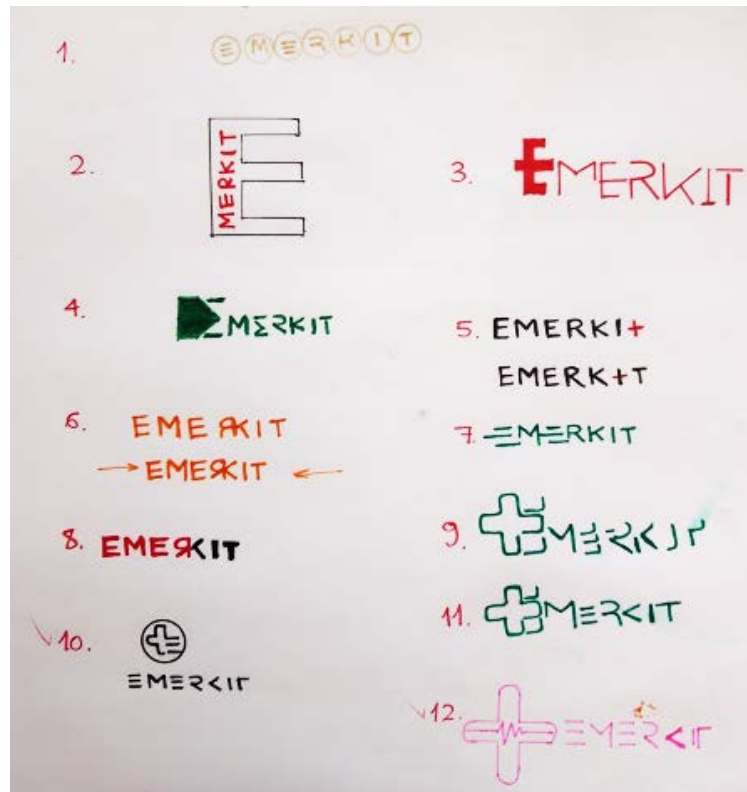 1. EMERKIT
2. EMERKIT
3. EMERKIT
4. EMERKIT
5. EMERKI+
EMERK+T
6. EMERKIT
→ EMERKIT ←
7. EMERKIT
8. EMERKIT
9. EMERKIT
10. EMERKIT
11. EMERKIT
12. EMERKIT